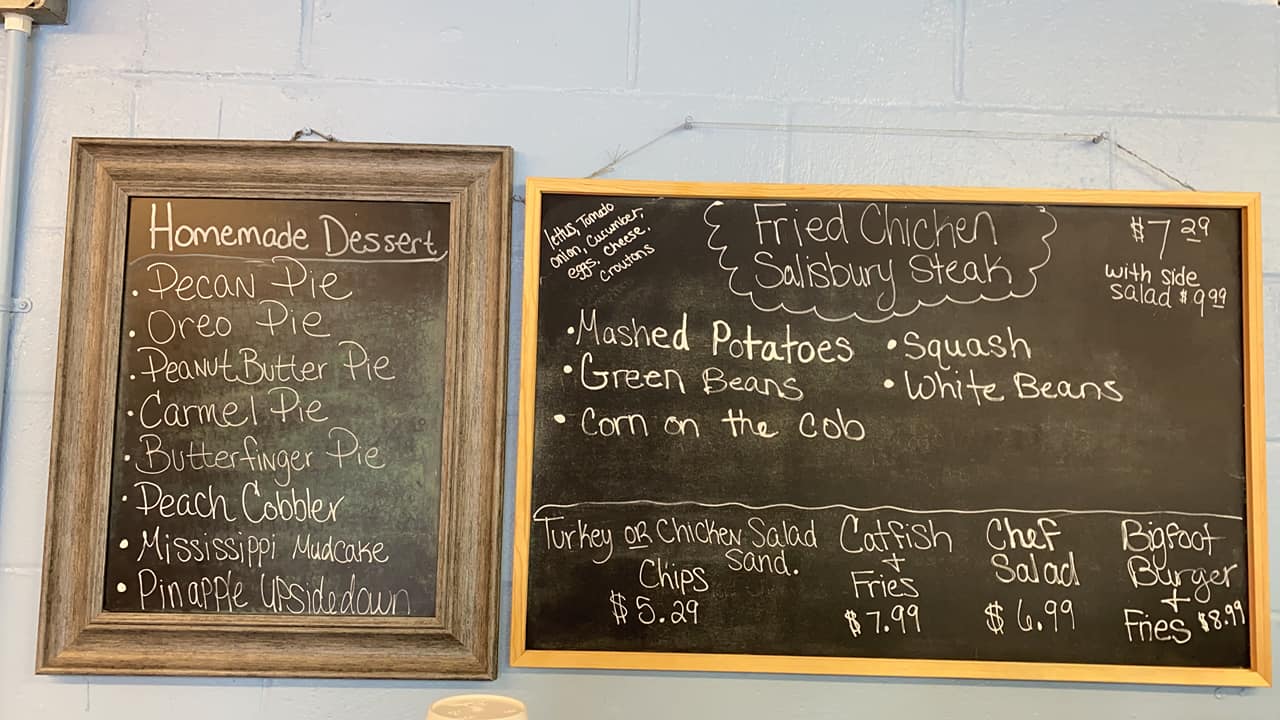 Homemade Dessert
• Pecan Pie
• Oreo Pie
• Peanut Butter Pie
• Carmel Pie
• Butterfinger Pie
• Peach Cobbler
• Mississippi Mudcake
• Pinapple Upsidedown
lettus, Tomato
onion, cucumber,
eggs, cheese,
croutons
Fried Chicken
Salisbury Steak
$7 29
with side
salad $9 99
• Mashed Potatoes
• Green Beans
• Corn on the Cob
• Squash
• White Beans
Turkey OR Chicken Salad
Sand.
Chips
$5.29
Catfish
+
Fries
$7.99
Chef
Salad
$6.99
Bigfoot
Burger
+
Fries $8.99